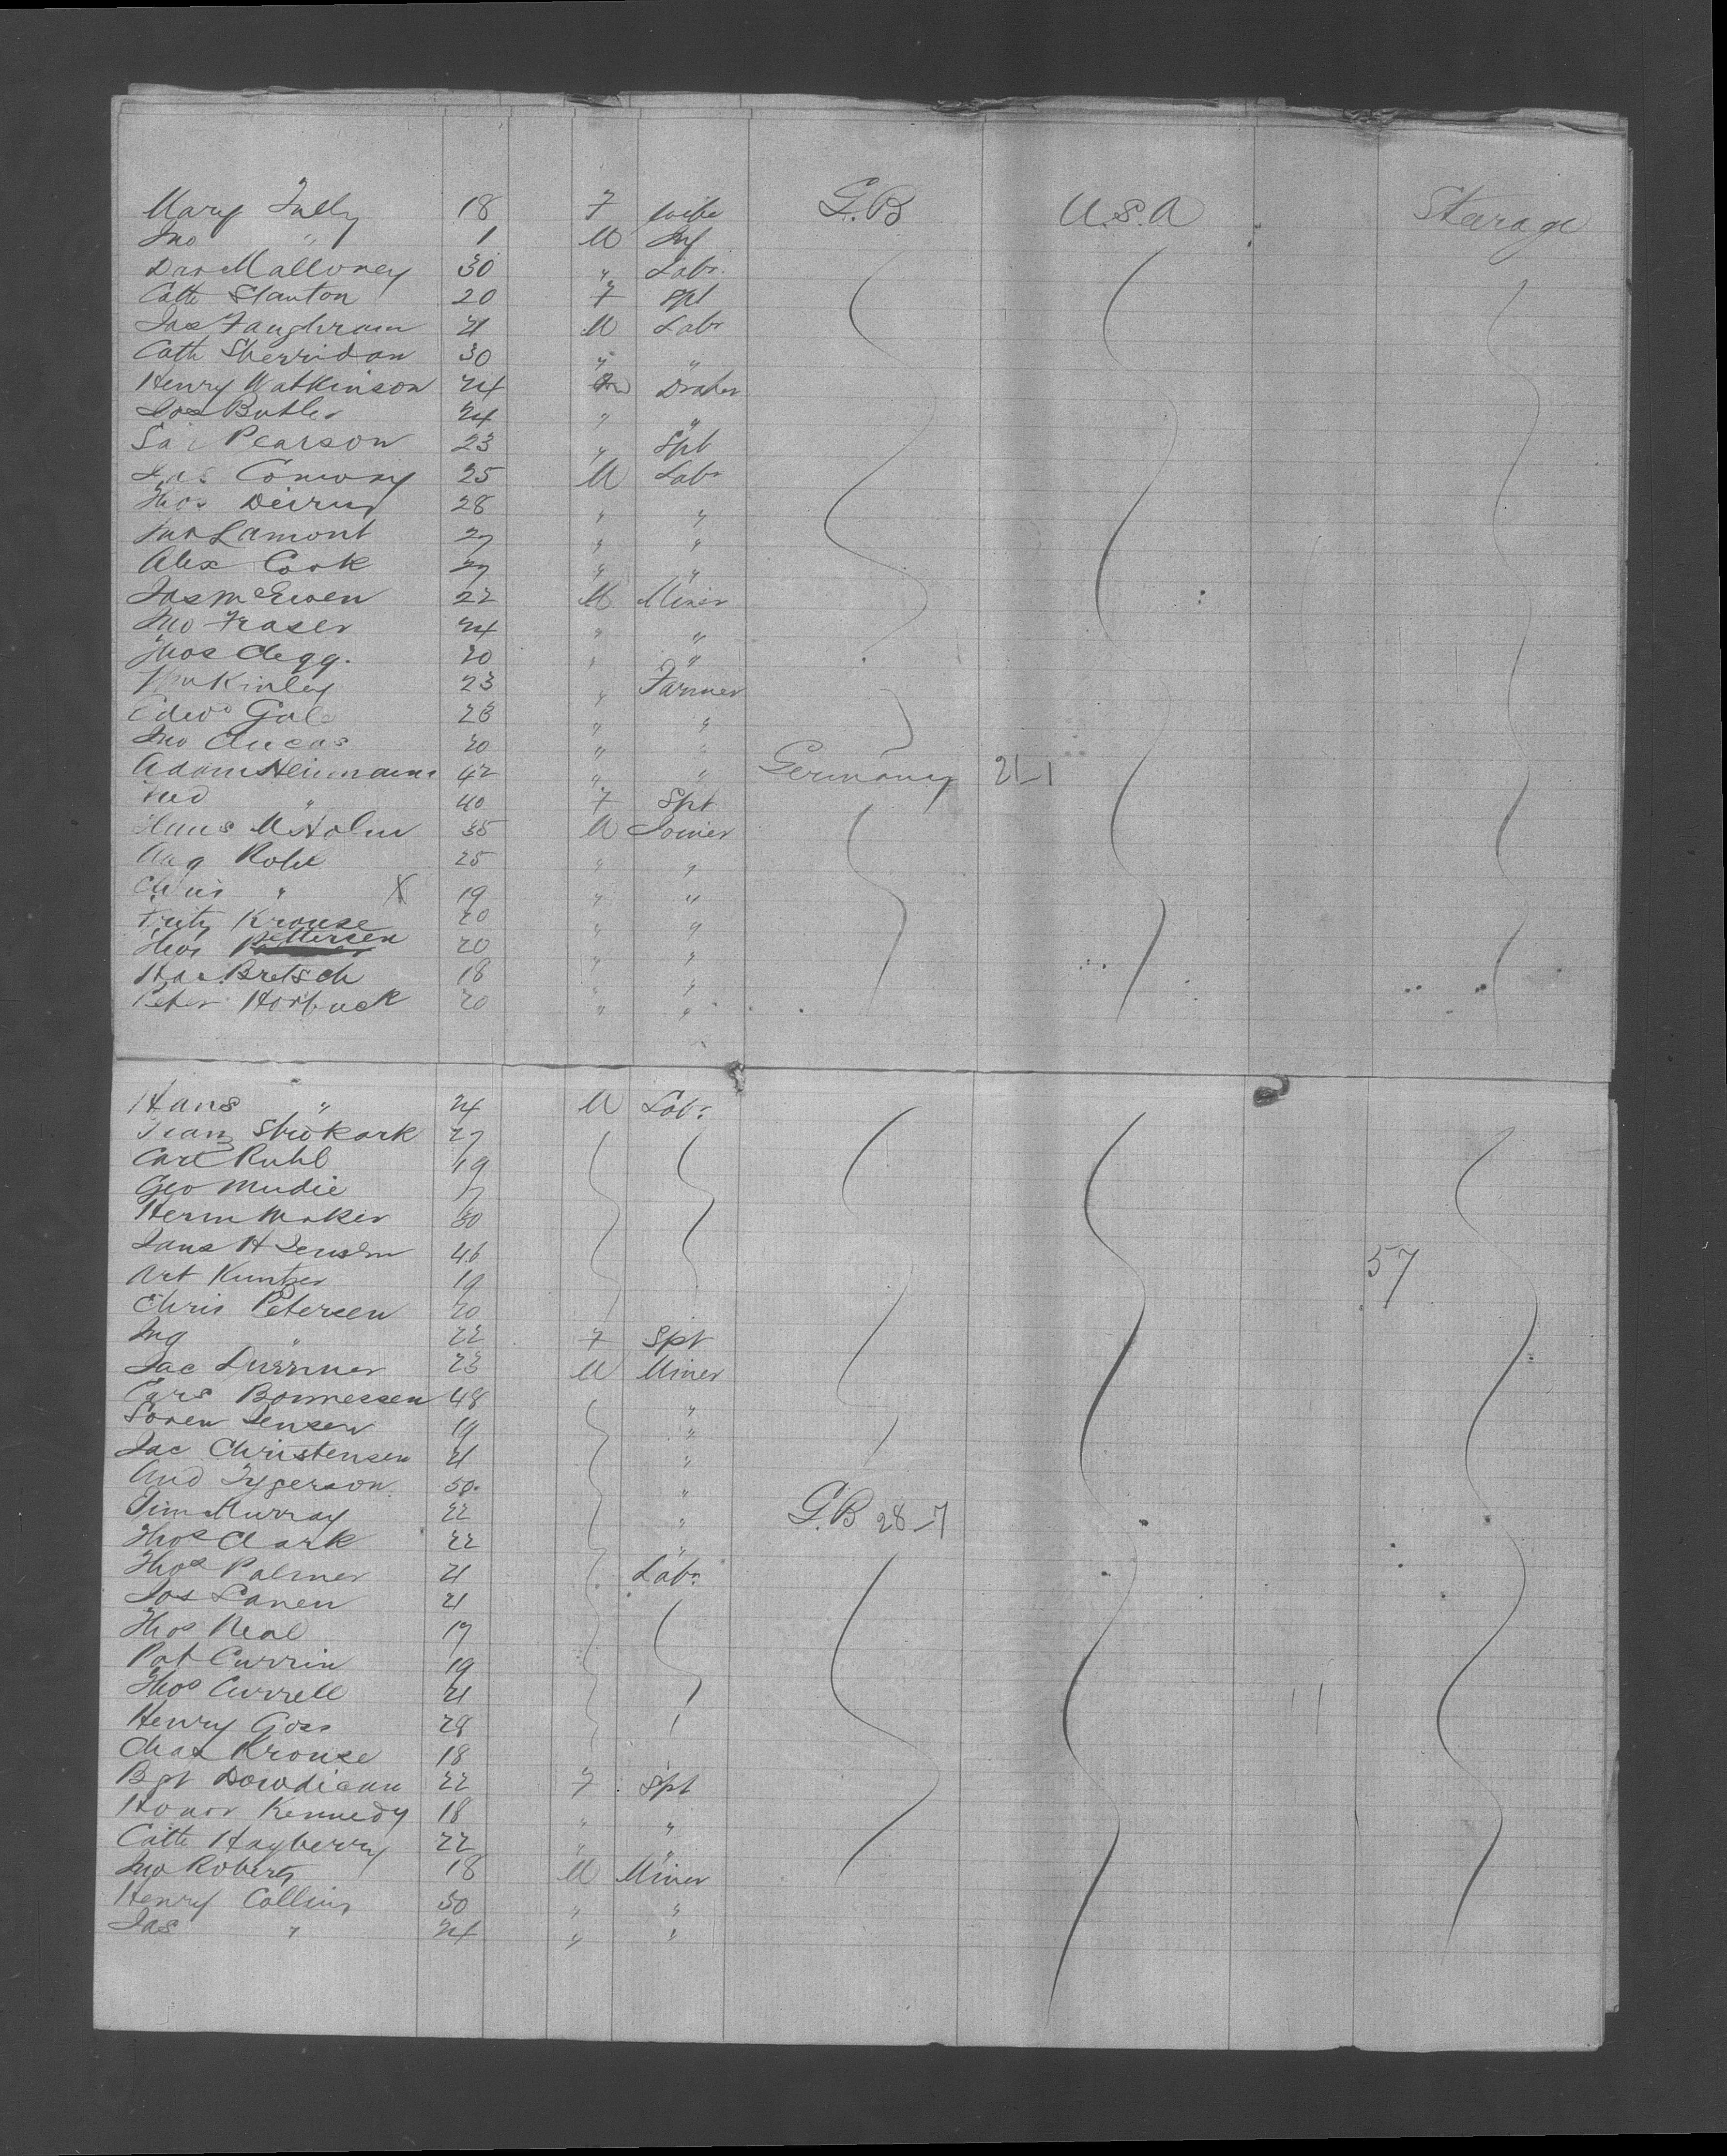 Mary Tully 18 F wife G.B U.S.A Steerage
Jno " 1 M Inf
Dan Malloney 30 " Labr.
Cath Stanton 20 F Spt
Jas Faughnan 21 M Labr
Cath Sherridan 30 " "
Henry Watkinson 24 Draper
Jos Butler 24 " "
Sar Pearson 23 " Spt
Jas Conway 25 M Labr
Thos 28 " "
Jno Lamont 27 " "
Alex Cook 27 " "
Jas McEwen 22 M Miner
Jno Fraser 24 " "
Thos Clegg. 20 " "
Wm Kinley 23 " Farmer
Edwd Gale 23 " "
Jno 20 " "
Adam Heinmann 42 " " Germany 21-1
" 40 F Spt
Hans M Holm 35 M Joiner
Aug Rohl 25 " "
Chris " X 19 " "
Fritz Krouse 20 " "
Thos Pettersen 20 " "
Bretsch 18 " "
Peter Horbuck 20 " "
Hans " 24 M Labr
Franz 27
Carl Ruhl 19
Geo Mudie 17
Herm Maker 30
Jans H Jensen 46
Art Kuntzer 19 57
Chris Petersen 20
Ing " 22 F Spt
Jac 23 M Miner
Lars Bonnessen 48 "
Soren Jensen 19 "
Jac Christensen 21 "
And 50. "
Tim Murray 22 " G.B 28-7
Thos Clark 22 "
Thos Palmer 21 Labr.
Jos Lanen 21
Thos Neal 17
Pat Currin 19
Thos Currell 21
Henry Goss 28
Chas Krouse 18
Bgt Dowdican 22 F Spt
Honor Kennedy 18 " "
Cath Hayberry 22 " "
Jno Roberts 18 M Miner
Henry Collins 30 " "
Jas " 24 " "